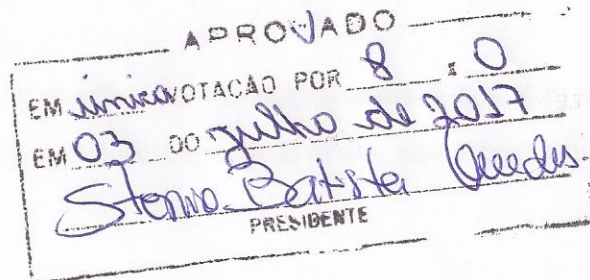 APROVADO
EM única VOTAÇÃO POR 8 x 0
EM 03 DO julho de 2017
Stenio Batista Guedes.
PRESIDENTE